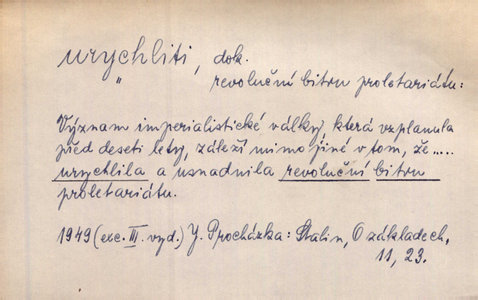 urychliti, dok.
" revoluční bitvu proletariátu:
Význam imperialistické války, která vzplanula
před deseti lety, záleží mimo jiné v tom, že.....
urychlila a usnadnila revoluční bitvu
proletariátu.
1949 (exc. III. vyd.) J. Procházka: Stalin, O základech,
11, 23.